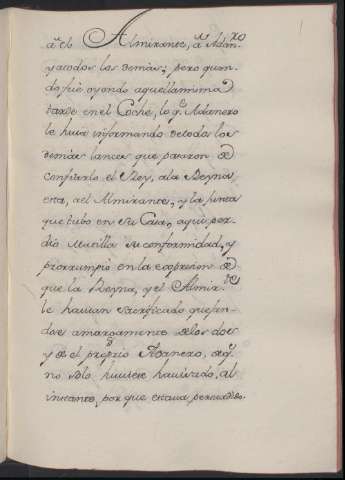 a el Almirante, a Adan.ro
y a todos los demás; pero quan-
do fué oyendo aquella misma
tarde en el Coche, lo q.e Adanero
le huia informando de todos los
demás lances que pasaron de
confiarlo el Rey, a la Reyna,
esta, a el Almirante, y la Junta
que tubo en su Casa, aqui per-
dio Mancilla su conformidad, y
prorrumpió en la expresion de
que la Reyna, y el Almir.te
le hauian sacrificado quejan-
dose amargamente de los dos
y de el proprio Adanero, de q.e
no solo huuiese hauisado, al
instante, por que estaua persuadido.